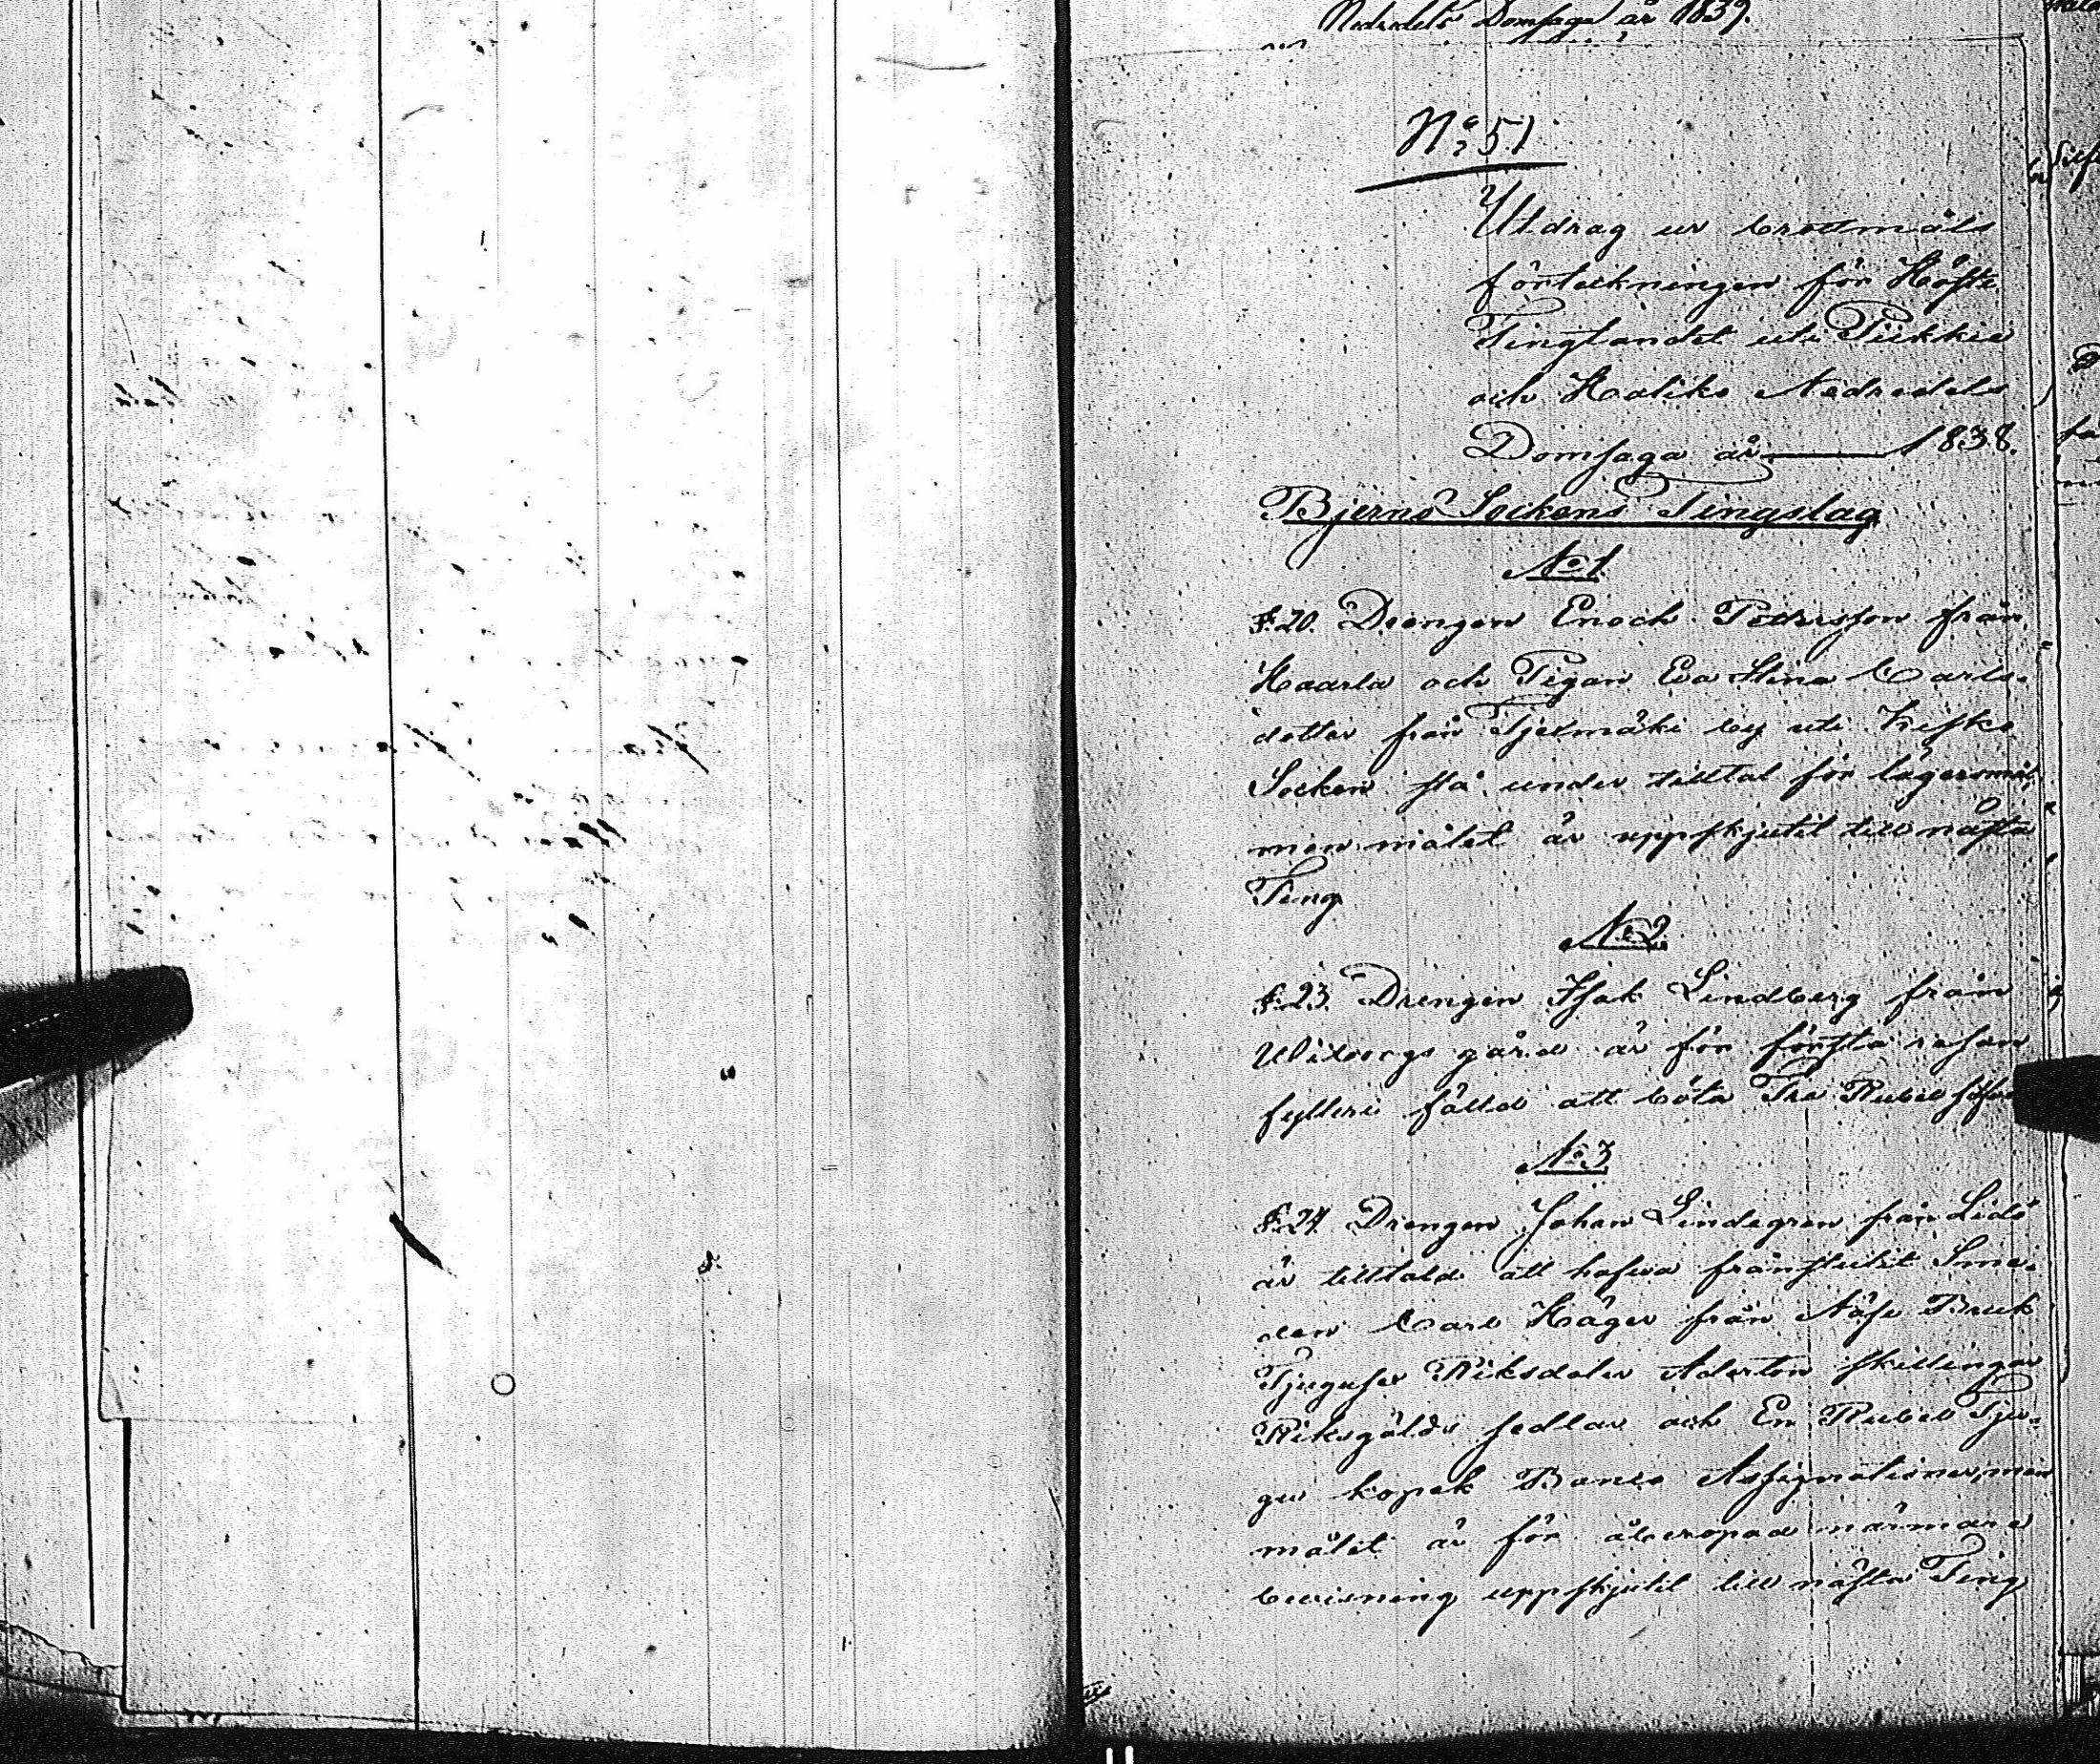 Nedredels Domsaga år 1839.
No 51
Utdrag ur brottmåls
förteckningen för Höste
Tingtandet uti Piikkie
och Haliko Nedredels
Domsaga år 1838.
Bjerno Sockens Tingslag
No 1
§. 20. Drengen Enoch Pettersson från
Haarla och Pigan Eva Stina Carls-
dotter från Tjermäki by uti Kisko
Socken stå under tilltal för lägersmål,
men målet är uppskjutit till nästa
Ting
No 2.
§. 23. Drengen Isak Lindberg från
Wiksbergs gård är för första resan
fylleri fälld att böta Tre Rubel Silfver
No 3
§. 24 Drengen Johan Lindegren från Lidö
är tilltald att hafva frånstulit Sme-
den Carl Häger från Näse Bruk
Tjugusex Riksdaler Aderton skillingar
Riksgälds sedlar och En Rubel Tju-
gu kopek Banco Assignationer, men
målet är för åberopad närmare
bevisning uppskjutit till nästa Ting